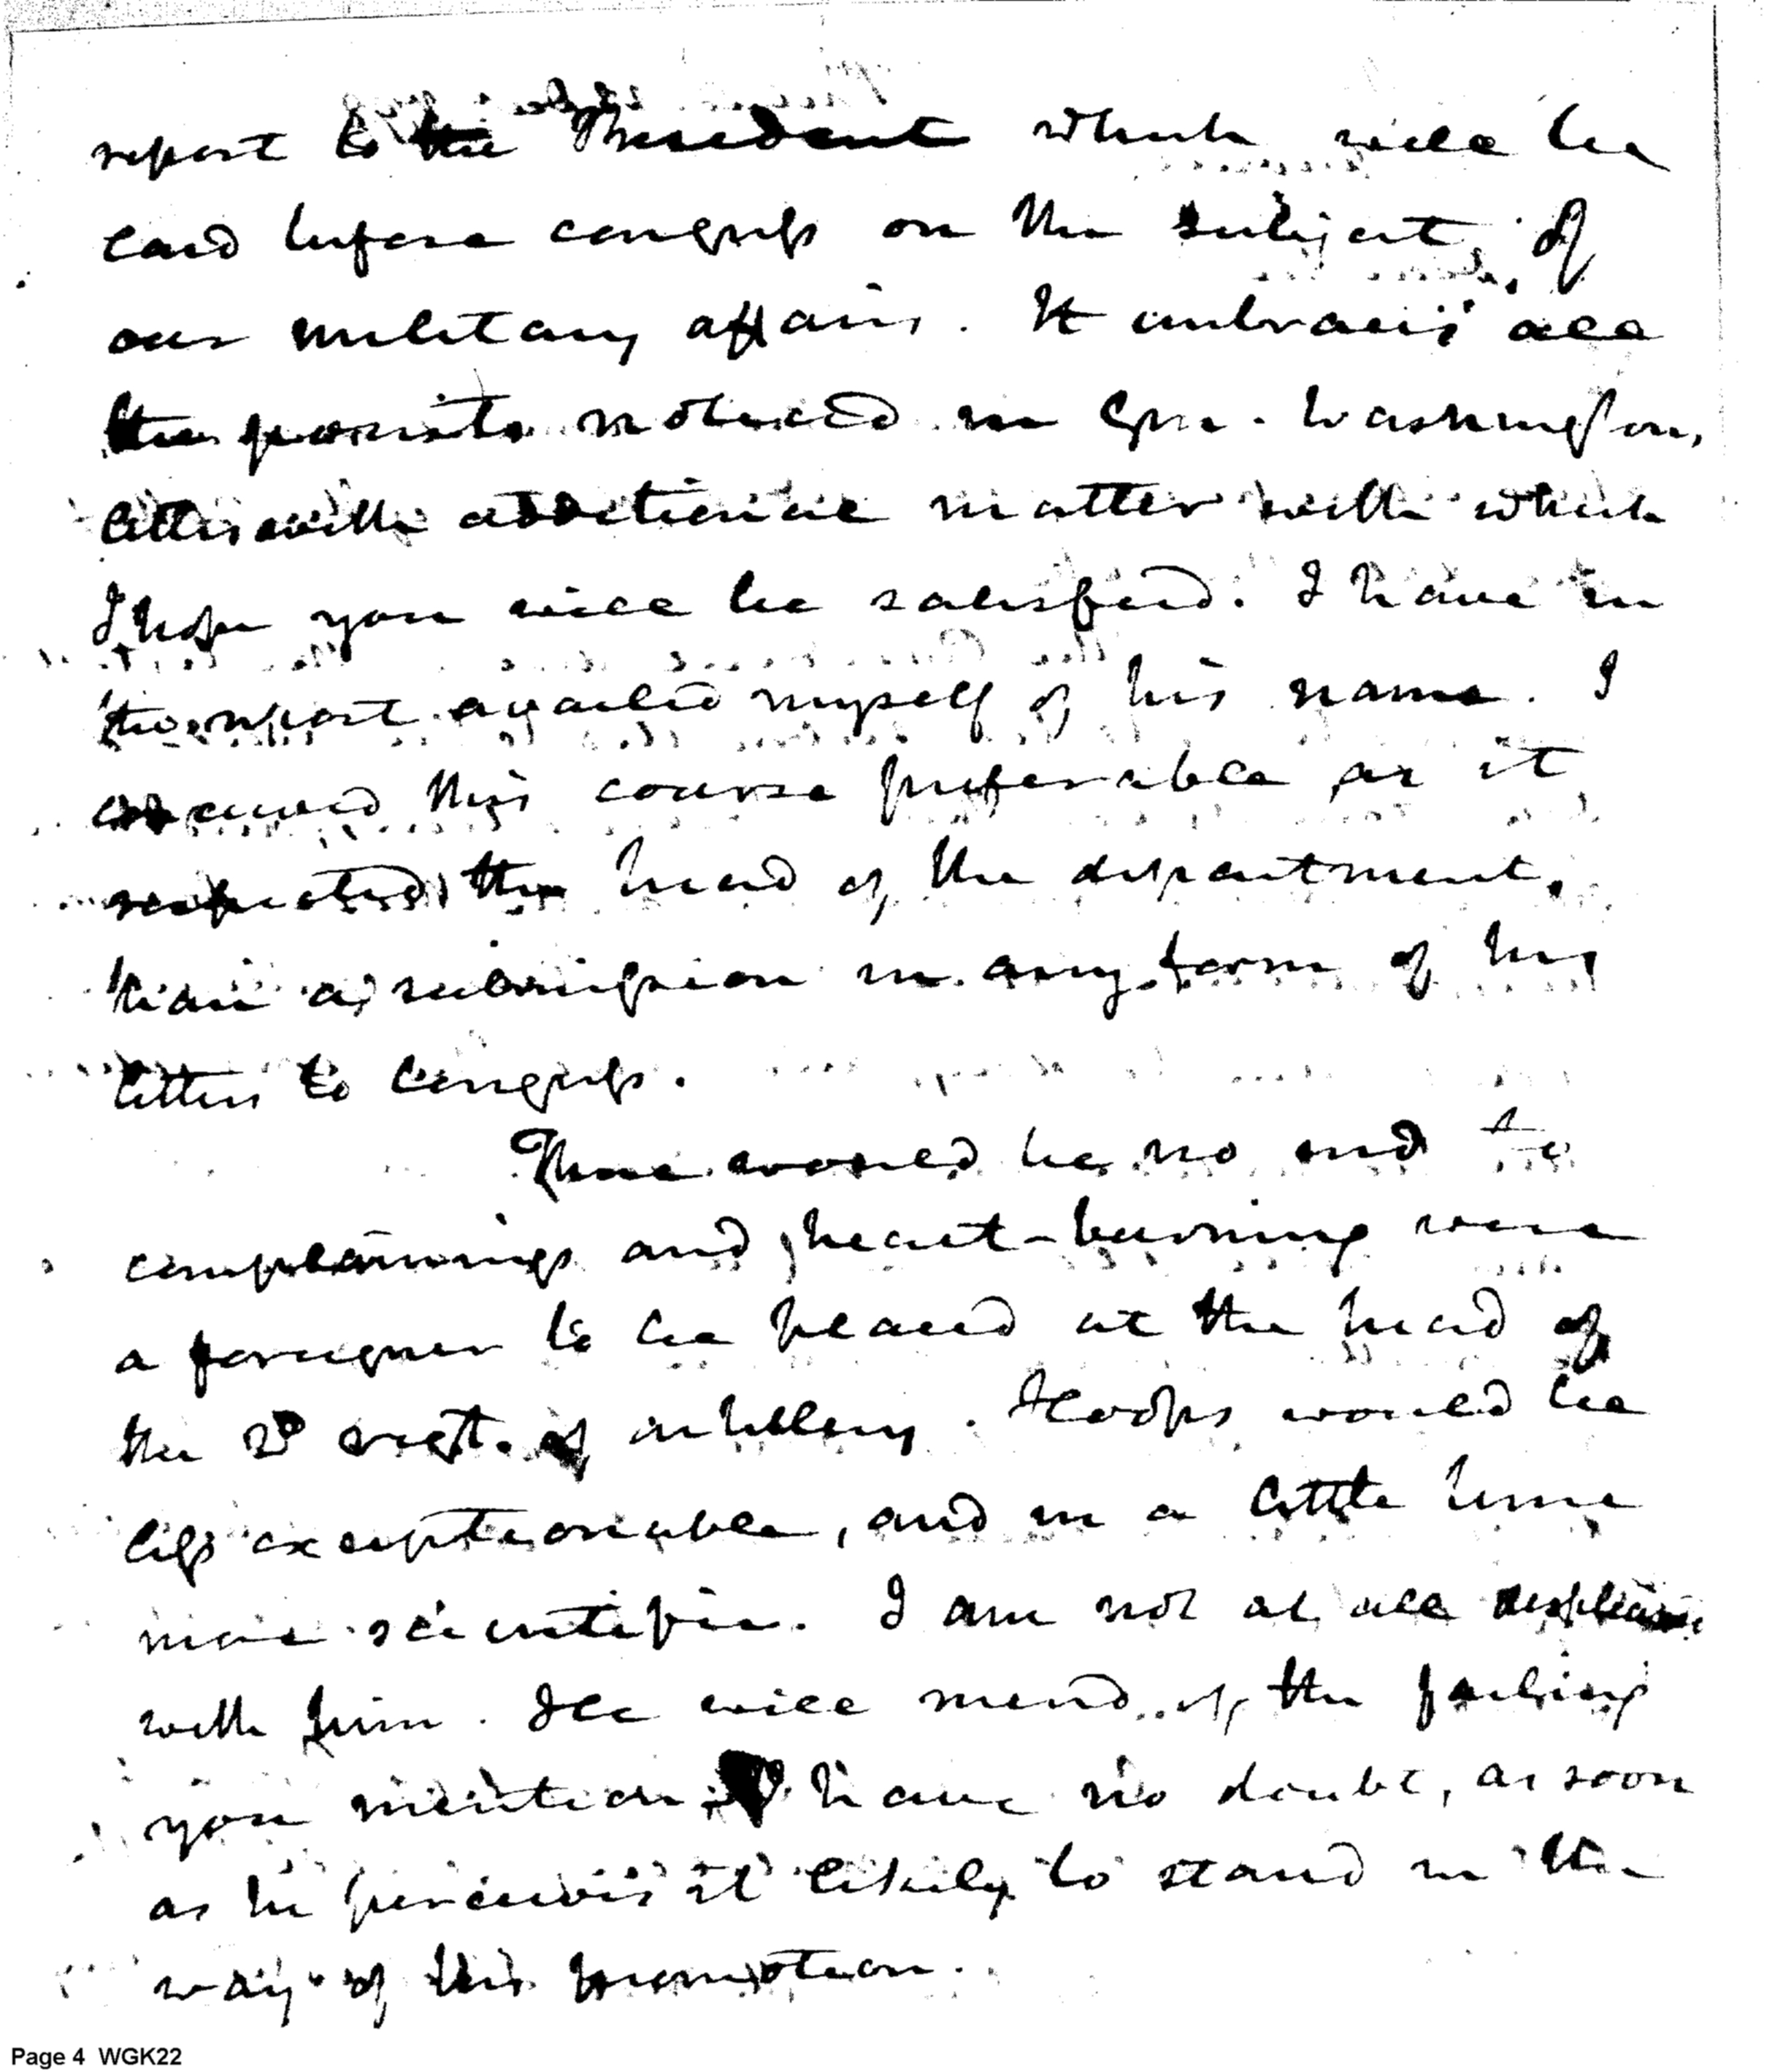 report to the President which will be
laid before congress on the subject of
our military affairs. It embraces all
the points noticed in Gen. Washingtons
letters with additional matter with which
I hope you will be satisfied. I have in
the report availed myself of his name. I
conceived this course preferable as it
respected the head of the department,
than a submission in any form of his
letters to Congress.
There would be no end to
complainings and heart-burning were
a foreigner to be placed at the head of
the 2d regt. of artillery. Hoops would be
less exceptionable, and in a little time
more scientific. I am not at all displeased
with him. He will mend of the failing
you mention I have no doubt, as soon
as he perceives it likely to stand in the
way of his promotion.
Page 4 WGK22